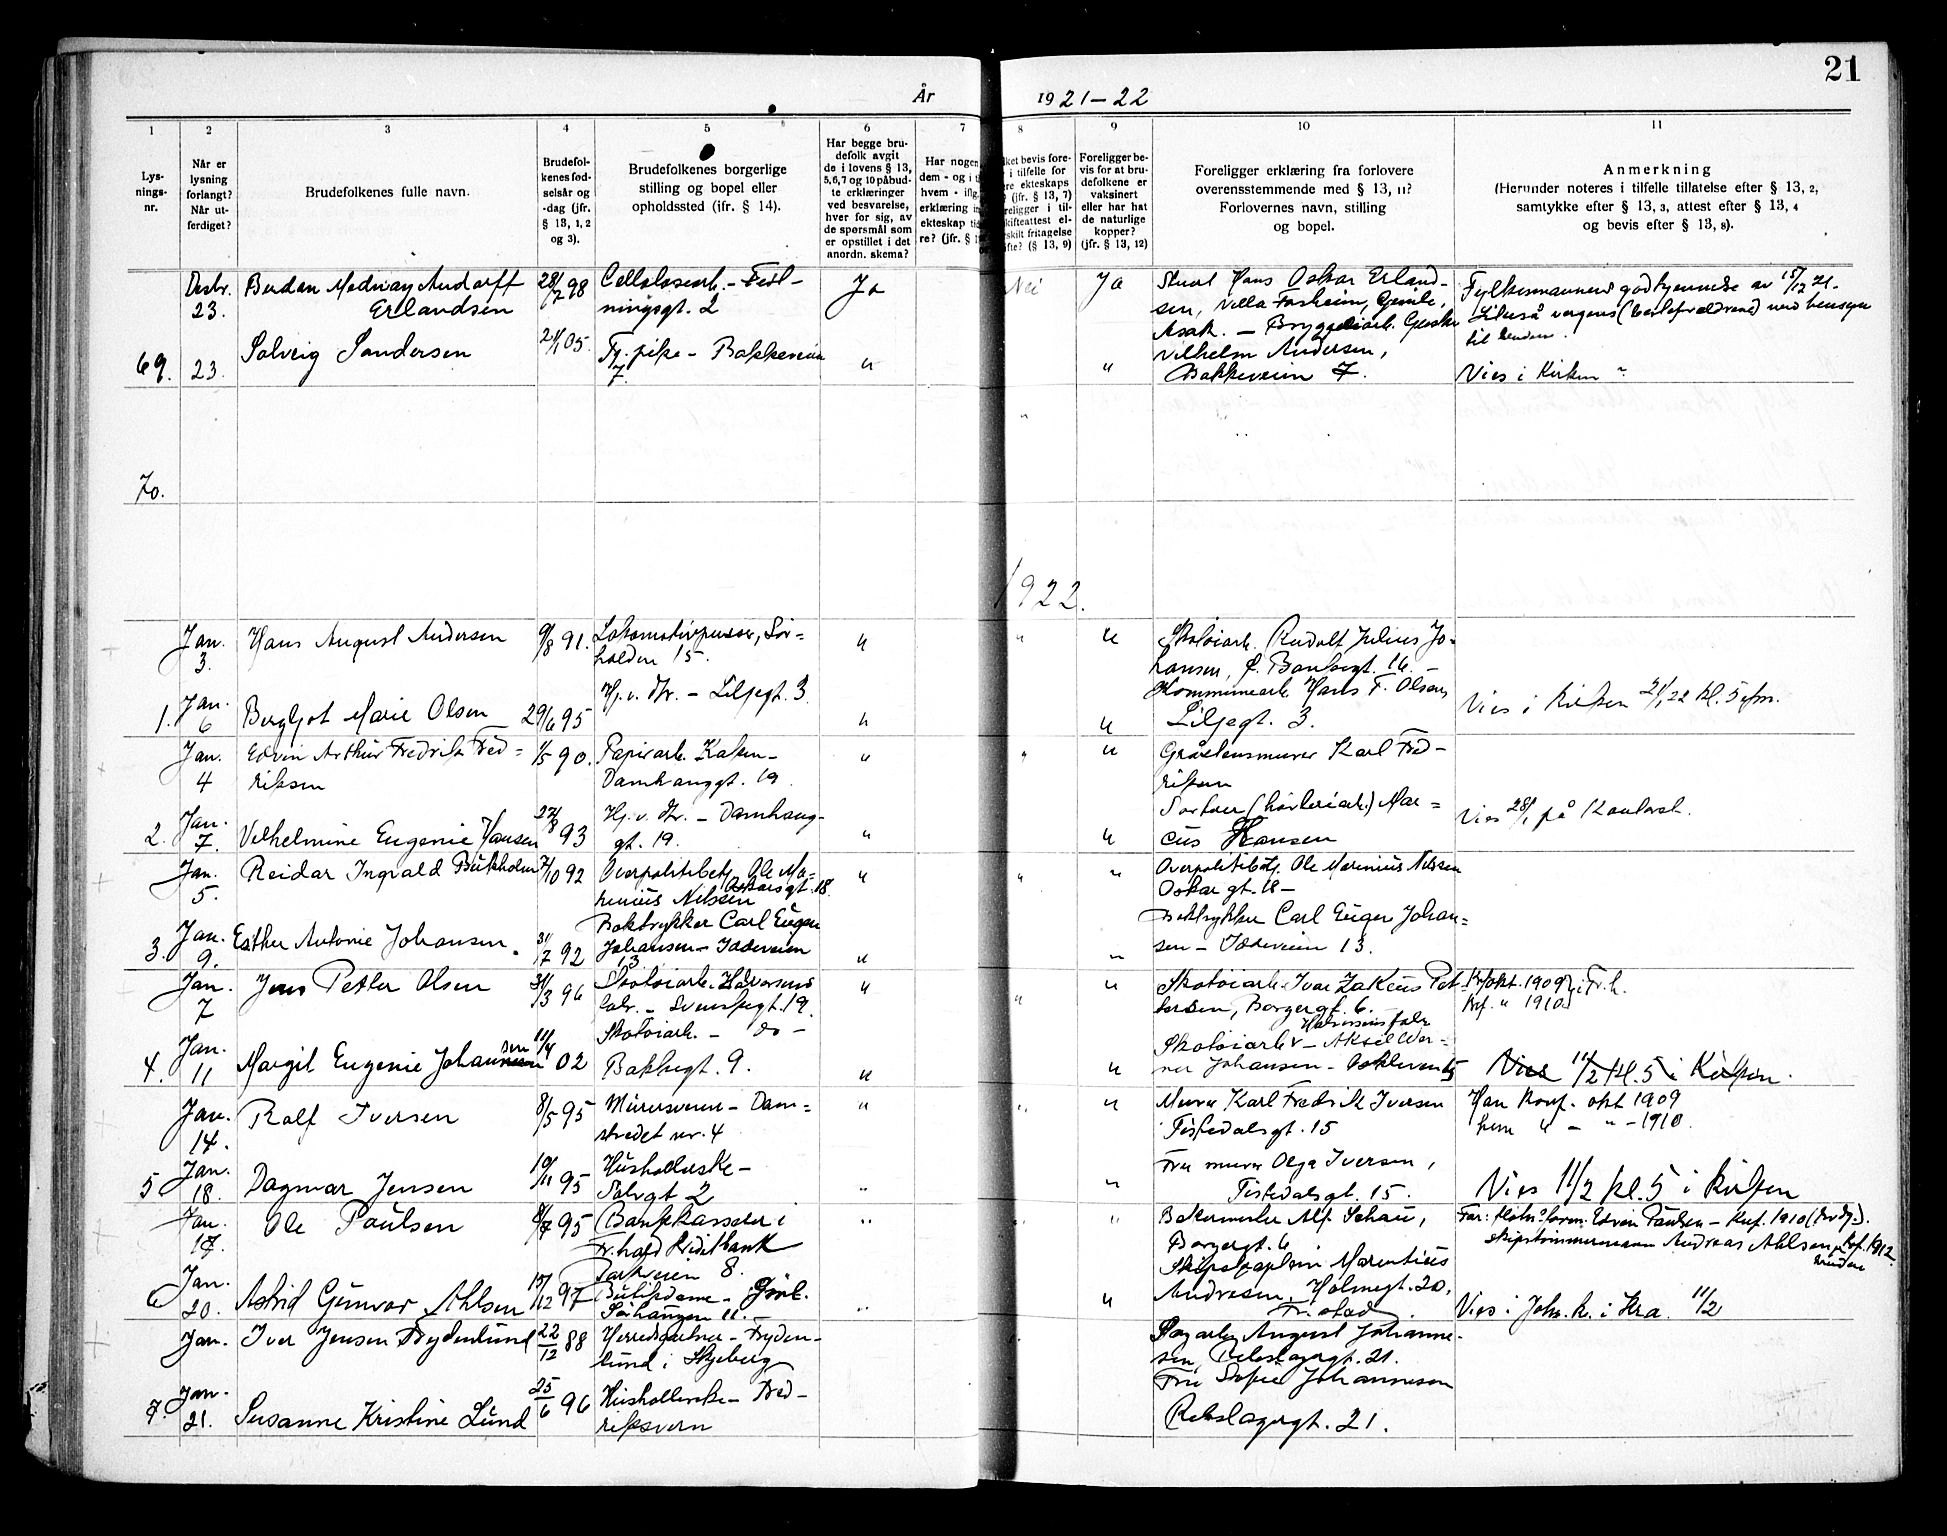 21
År 1921-22
1 2 3 4 5 6 7 8 9 10 11
Lys-
nings-
nr.
Når er
lysning
forlangt?
Når ut-
ferdiget?
Brudefolkenes fulle navn.
Brudefol-
kenes fød-
selsår og
-dag (jfr.
§ 13, 1, 2
og 3).
Brudefolkenes borgerlige
stilling og bopel eller
opholdssted (ifr. § 14).
Har begge bru-
defolk avgit
de i lovens § 13,
5,6,7 og 10 påbud-
te erklæringer
ved besvarelse,
hver for sig, av
de spørsmål som
er opstillet i det
anordn. skema?
Har nogen
dem - og i t
hvem - ifig.
erklæring i
ekteskap ti
re? (jfr. § 1
ket bevis fore-
i tilfelle for
re ekteskaps
? (jfr. § 13, 7)
religger i til-
kifteattest el-
skilt fritagelse
fte? (§ 13, 9)
Foreligger be-
vis for at bru-
defolkene er
vaksinert
eller har hat
de naturlige
kopper?
(jfr. § 13, 12)
Foreligger erklæring fra forlovere
overensstemmende med § 13, 11?
Forlovernes navn, stilling
og bopel.
Anmerkning
(Herunder noteres i tilfelle tillatelse efter § 13, 2,
samtykke efter § 13, 3, attest efter § 13, 4
og bevis efter § 13, 8).
Desbr.
23.
Erlandsen
28/7 98
Cellulosearb. -
ningsgt. 2
Ja
Nei
Ja
Hans Oskar Erland-
sen, Villa
Asak. - Bryggeriarb.
Vilhelm Andersen,
Bakkeveien 7.
Fylkesmannens godkjennelse av 15/12 21.
Likeså vergens (besteforældrene) med hensyn
til bruden.
69. 23.
Solveig Sandersen
21/1 05.
Tj. pike - Bakkeveien
7.
"
"
Vies i Kirken
70.
"
1922.
Jan.
3.
Hans August Andersen
9/8 91.
Lokomotivpusser, Sør-
halden 15.
"
"
"
Skotøiarb. Rudolf Julius Jo-
hansen, Bankegt. 16. -
Kommunearb. Hans F. Olsen
Liljegt. 3.
1. Jan.
6
Bergljot Marie Olsen
29/6 95
Hj. v. dtr. - Liljegt. 3
"
"
Vies i Kirken 21/1 22 kl. 5 efm.
Jan.
4
Edvin Arthur Fredrik Fred-
riksen
1/5 90.
Papirarb.
Damhauggt. 19
"
"
"
Gråstensmurer Karl Fred-
riksen
2. Jan.
7.
Vilhelmine Eugenie Hansen
27/8 93
Hj. v. dtr. - Damhaug-
gt. 19.
"
"
Mar-
cus Hansen
Vies 28/1 på Kontoret.
Jan.
5.
Reidar Ingvald Bukholm
7/10 92
Overpolitibetj. Ole Ma-
renius Nilsen Oskarsgt. 18.
"
"
"
Overpolitibetj. Ole Marenius Nilsen
Oskar gt. 18 -
3. Jan.
9.
Esther Antonie Johansen
31/7 92
Boktrykker Carl Eugen
Johansen - Iddeveien
13
"
"
Boktrykker Carl Eugen Johan-
sen - Iddeveien 13.
Jan.
7
Jens Petter Olsen
31/3 96
Skotøiarb. Halvorsens
fabr. - Svenskegt. 19.
"
"
"
Skotøiarb. Ivar Zakeus Pet-
tersen, Borgergt. 6. -
Halvorsens fabr
Kf. okt. 1909 i Fr.h.
Kf. " 1910
4. Jan.
11
Margit Eugenie Johansen
11/4 02
Skotøiarb. - do -
Bakkegt. 9.
"
"
Skotøiarb - Aksel Wer-
ner Johansen -
Vies 11/2 kl. 5 i Kirken.
Jan.
14.
Rolf Iversen
8/5 95
Murersvenn - Dam-
stredet nr. 4
"
"
"
Murer Karl Fredrik Iversen
Tistedalsgt. 15
Han konf. okt 1909
hun " - " - 1910.
5 Jan.
18.
Dagmar Jensen
19/11 95
Husholderske -
Sølvgt 2
"
"
Fru murer Olga Iversen,
Tistedalsgt. 15.
Vies 11/2 kl. 5 i Kirken
Jan.
17.
Ole Paulsen
8/7 95
Bankkasserer i
Fr.hald Kreditbank
Parkveien 8.
"
"
Bakermester Alf Schau,
Borgergt. 6
Edvin Paulsen - Knf. 1910
skipstømmermann Andreas Ahlsen Knf. 1912
bruden
6 Jan.
20.
Astrid Gunvor Ahlsen
15/12 97
Butikdame -
Sørhaugen 11.
"
"
Skipskaptein Marentius
Andresen, Holmegt. 20,
Fr.stad
Vies i Joh. k. i Kra. 11/2
Jan.
Iver Jensen Frydenlund
22/12 88
Herredsgartner - Fryden-
lund i Skjeberg
Sagarb. August Johanne-
sen, Rebslagergt. 21.
7. Jan.
21.
Susanne Kristine Lund
25/6 96
Husholderske - Fred-
riksvern
Fru Sofie Johannesen
Rebslagergt. 21.